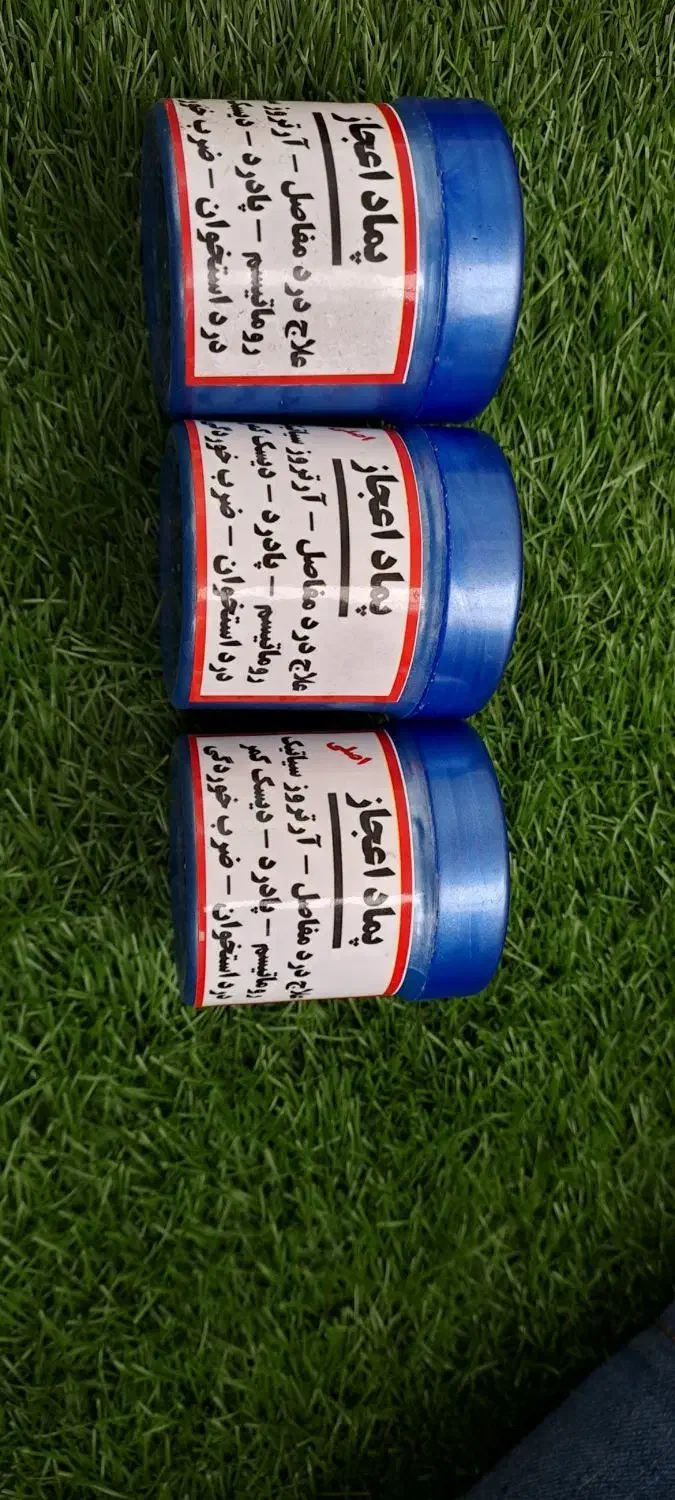 پماد اعجاز
علاج درد مفاصل - آرتروز
روماتیسم - پادرد - دیسک
درد استخوان - ضرب
اصلی
پماد اعجاز
علاج درد مفاصل - آرتروز سیاتیک
روماتیسم - پادرد - دیسک کمر
درد استخوان - ضرب خوردگی
اصلی
پماد اعجاز
علاج درد مفاصل - آرتروز سیاتیک
روماتیسم - پادرد - دیسک کمر
درد استخوان - ضرب خوردگی